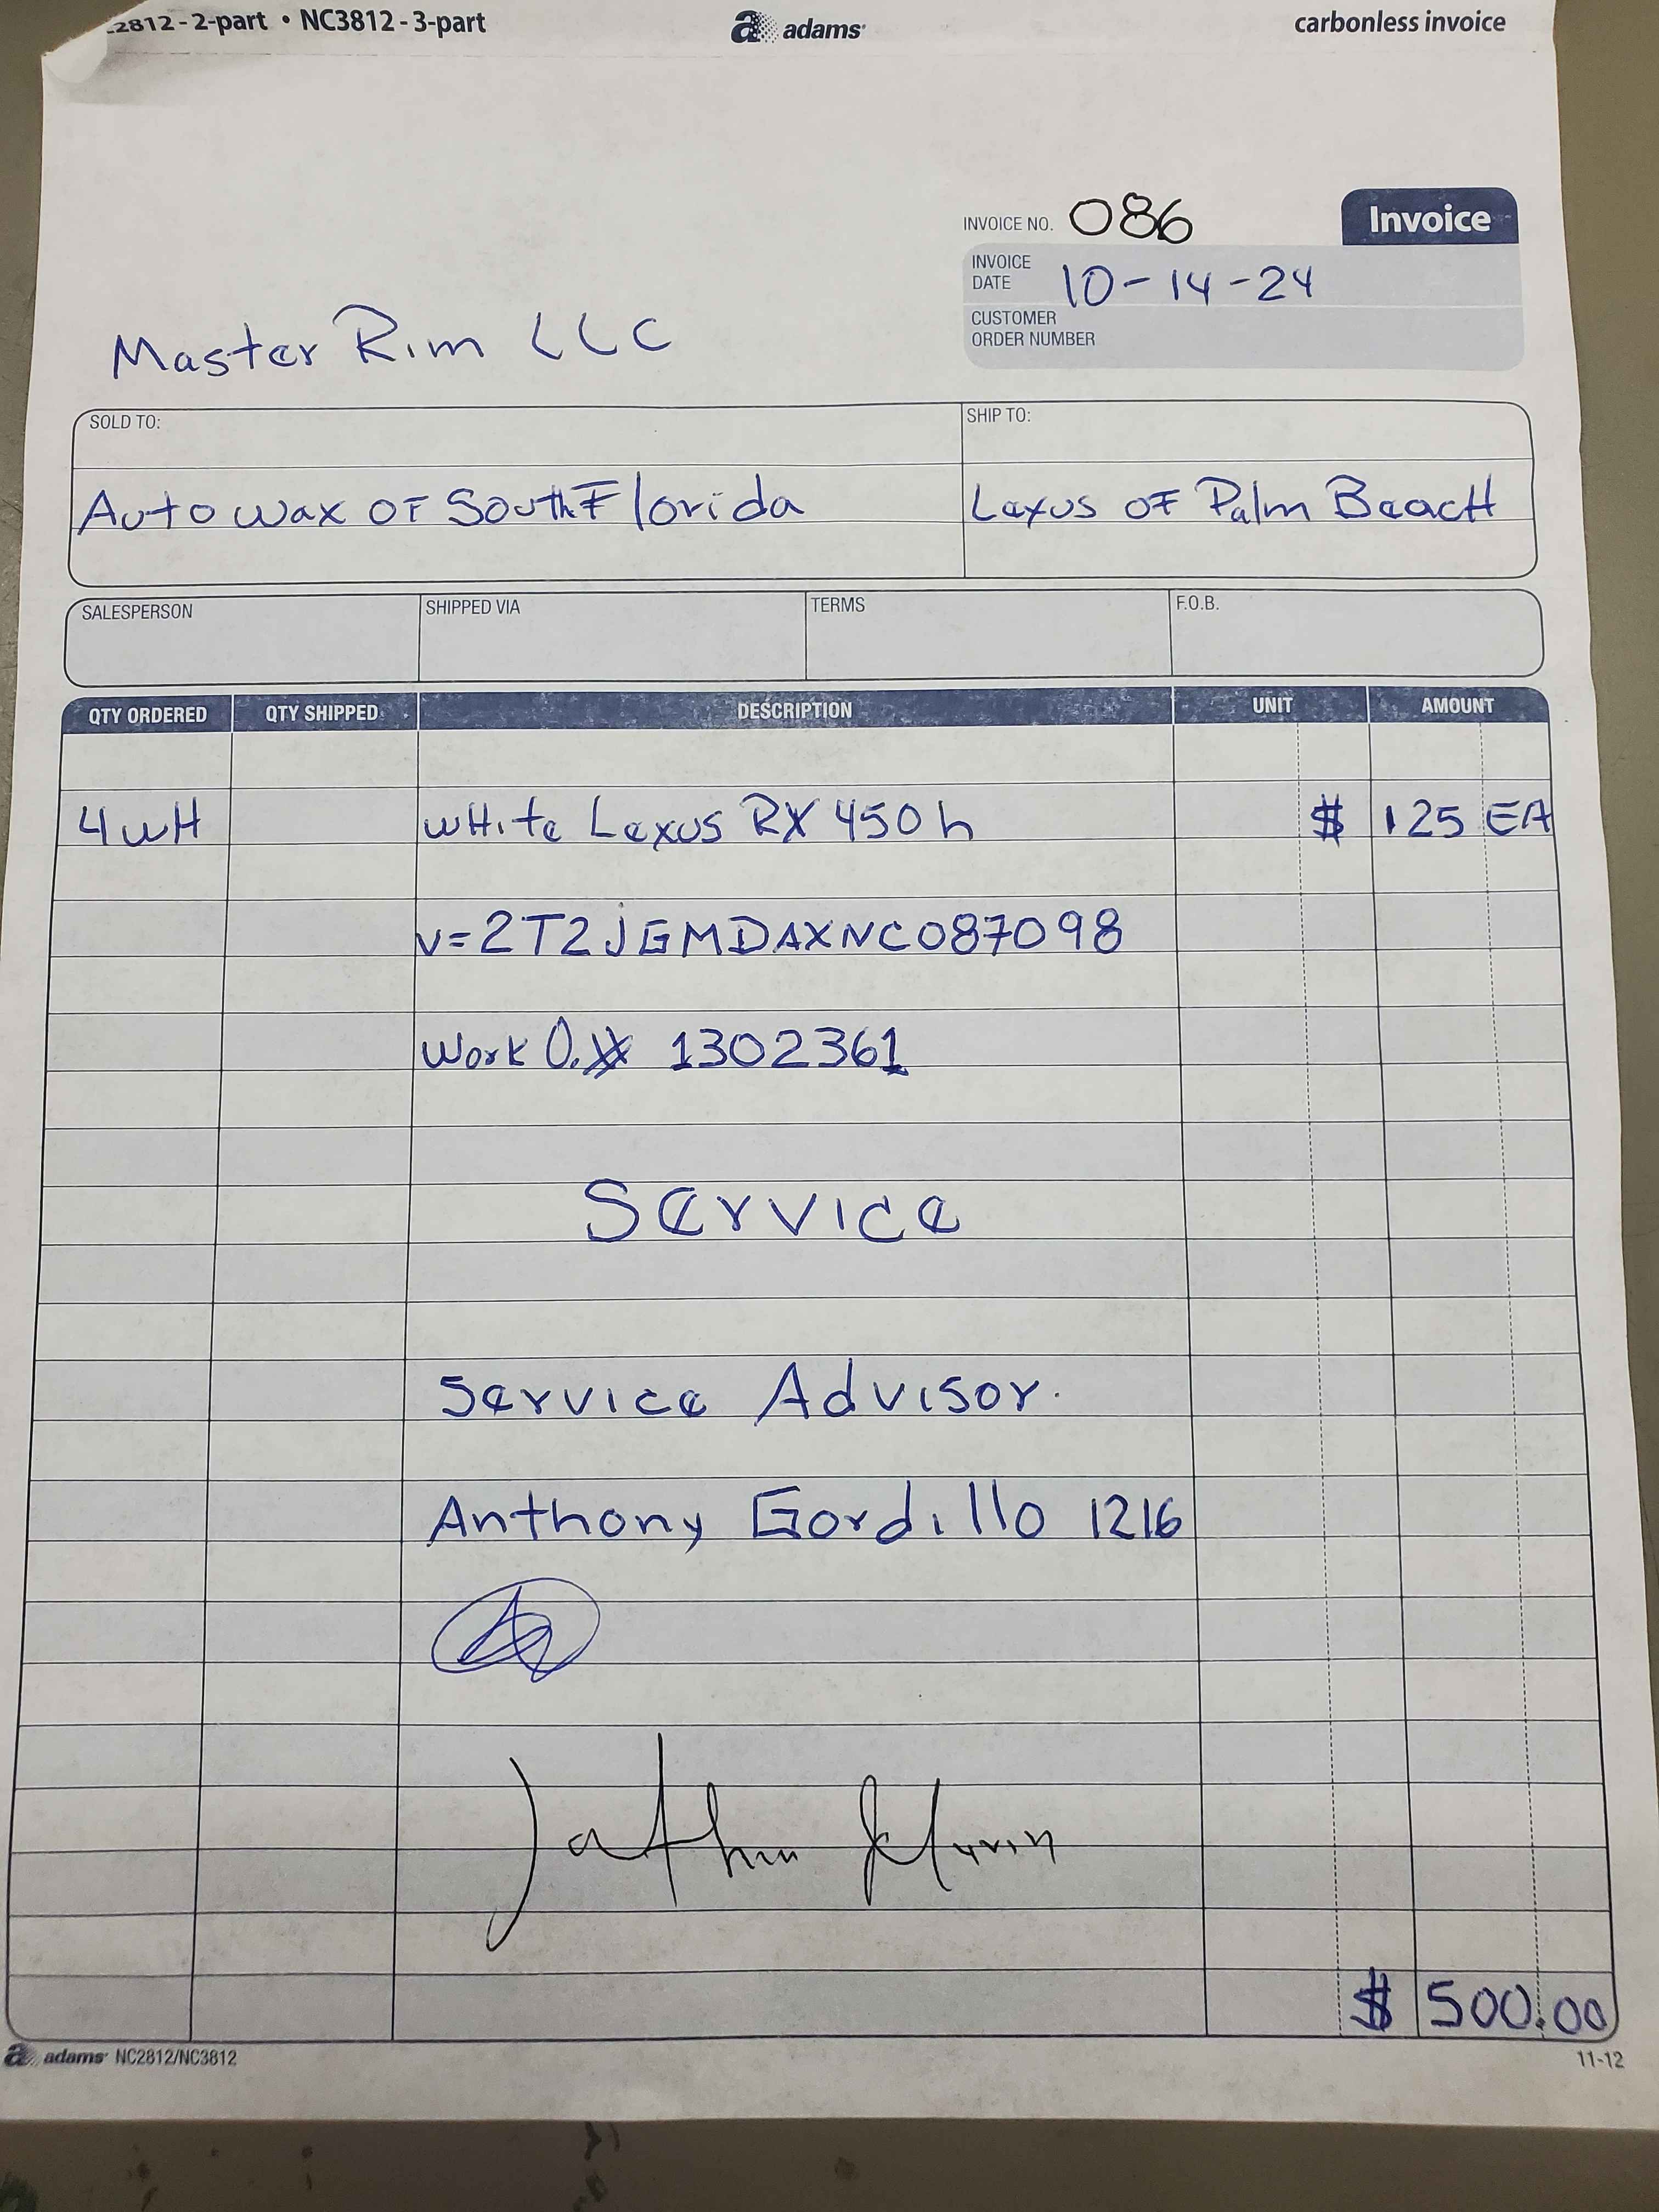 2812 - 2-part • NC3812 - 3-part adams carbonless invoice
INVOICE NO. 086 Invoice
INVOICE DATE 10-14-24
CUSTOMER ORDER NUMBER
Master Rim LLC
SOLD TO: SHIP TO:
Auto wax OF South Florida Lexus OF Palm BeacH
SALESPERSON SHIPPED VIA TERMS F.O.B.
QTY ORDERED QTY SHIPPED DESCRIPTION UNIT AMOUNT
4 wH wHite Lexus RX 450h $ 125 EA
v=2T2JGMDAXNC087098
Work O.# 1302361
Service
Service Advisor.
Anthony Gordillo 1216
$ 500.00
adams NC2812/NC3812 11-12